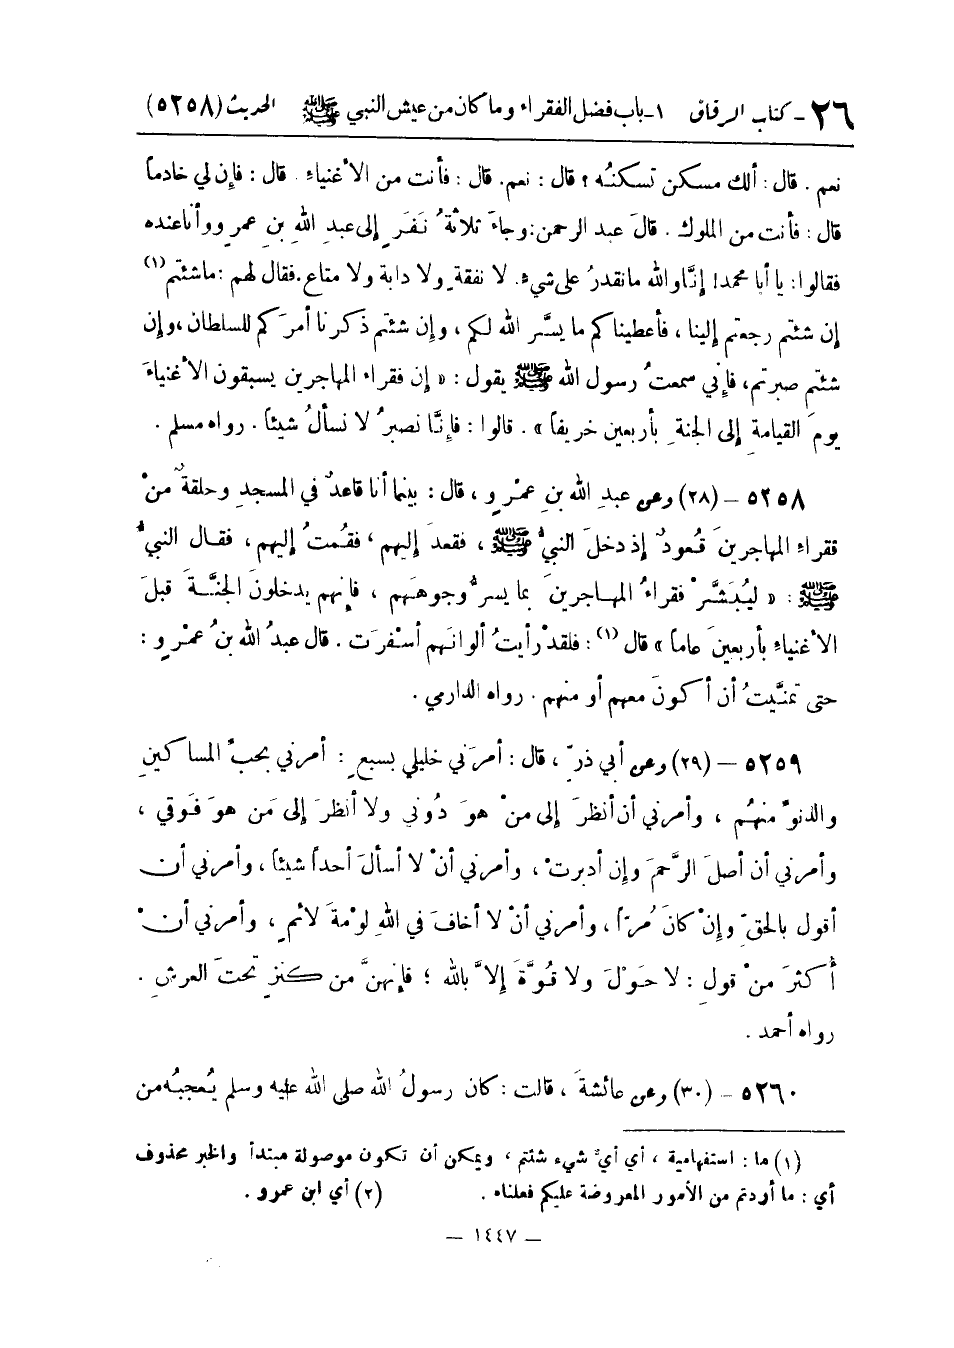 ٢٦ - كتاب الرقاق ١ - باب فضل الفقراء وما كان من عيش النبي ﷺ الحديث (٥٢٥٨)
نعم . قال : ألك مسكن تسكنُه ؟ قال : نعم. قال : فأنت من الأغنياء . قال : فإن لي خادماً
قال : فأنت من الملوك . قالَ عبد الرحمن:وجاءَ ثلاثةُ نَفَرٍ إلى عبدِ اللهِ بنِ عمرٍو وأنا عنده
فقالوا: يا أبا محمد! إنَّا والله مانقدرُ على شيءٍ. لا نفقةٍ ولا دابة ولا متاع.فقال لهم :ماشئتم(١)
إن شئتم رجعتم إلينا ، فأعطيناكم ما يسَّر الله لكم ، وإن شئتم ذكرنا أمرَكم للسلطان ،وإن
شئتم صبرتم، فإنِّي سمعتُ رسول الله ﷺ يقول : « إن فقراء المهاجرين يسبقون الأغنياءَ
يومَ القيامةِ إلى الجنةِ بأربعين خريفاً » . قالوا : فإنَّا نصبرُ لا نسألُ شيئاً . رواه مسلم .
٥٢٥٨ – (٢٨) وعن عبدِ الله بنِ عمْرٍو ، قال : بينما أنا قاعدٌ في المسجدِ وحلقةٌ منْ
فقراءِ المهاجرينَ قُعودٌ إذ دخلَ النبيُّ ﷺ ، فقعدَ إليهم ، فقُمتُ إليهم ، فقال النبيُّ
ﷺ : « ليُبَشَّرْ فقراءُ المهاجرينَ بما يسرُّ وجوهَهم ، فإنهم يدخلونَ الجنَّةَ قبلَ
الأغنياءِ بأربعينَ عاماً » قال (١) : فلقدْ رأيتُ ألوانَهم أسْفرَت . قال عبدُ الله بنُ عمْرٍو :
حتى تمنَّيتُ أن أكونَ معهم أو منهم . رواه الدارمي .
٥٢٥٩ – (٢٩) وعن أبي ذرٍّ ، قال : أمرَني خليلي بسبعٍ : أمرني بحبِّ المساكينِ
والدنوِّ منهُم ، وأمرني أن أنظرَ إلى منْ هوَ دُوني ولا أنظرَ إلى مَن هوَ فَوقي ،
وأمرني أن أصلَ الرَّحمَ وإن أدبرتْ ، وأمرني أنْ لا أسألَ أحداً شيئاً ، وأمرني أن
أقول بالحقِّ وإنْ كانَ مُرّاً ، وأمرني أنْ لا أخافَ في اللهِ لوْمةَ لائمٍ ، وأمرني أنْ
أُكثرَ منْ قولِ : لا حَوْلَ ولا قُوَّةَ إلاَّ بالله ؛ فإنهنَّ من كنزٍ تحتَ العرشِ .
رواه أحمد .
٥٢٦٠ – (٣٠) وعن عائشةَ ، قالت : كان رسولُ الله صلى الله عليه وسلم يُعجبُه من
(١) ما : استفهامية ، أي أيَّ شيء شئتم ، ويمكن أن تكون موصولة مبتدأ والخبر محذوف
أي : ما أردتم من الأمور المعروضة عليكم فعلناه . (٢) أي ابن عمرو .
– ١٤٤٧ –